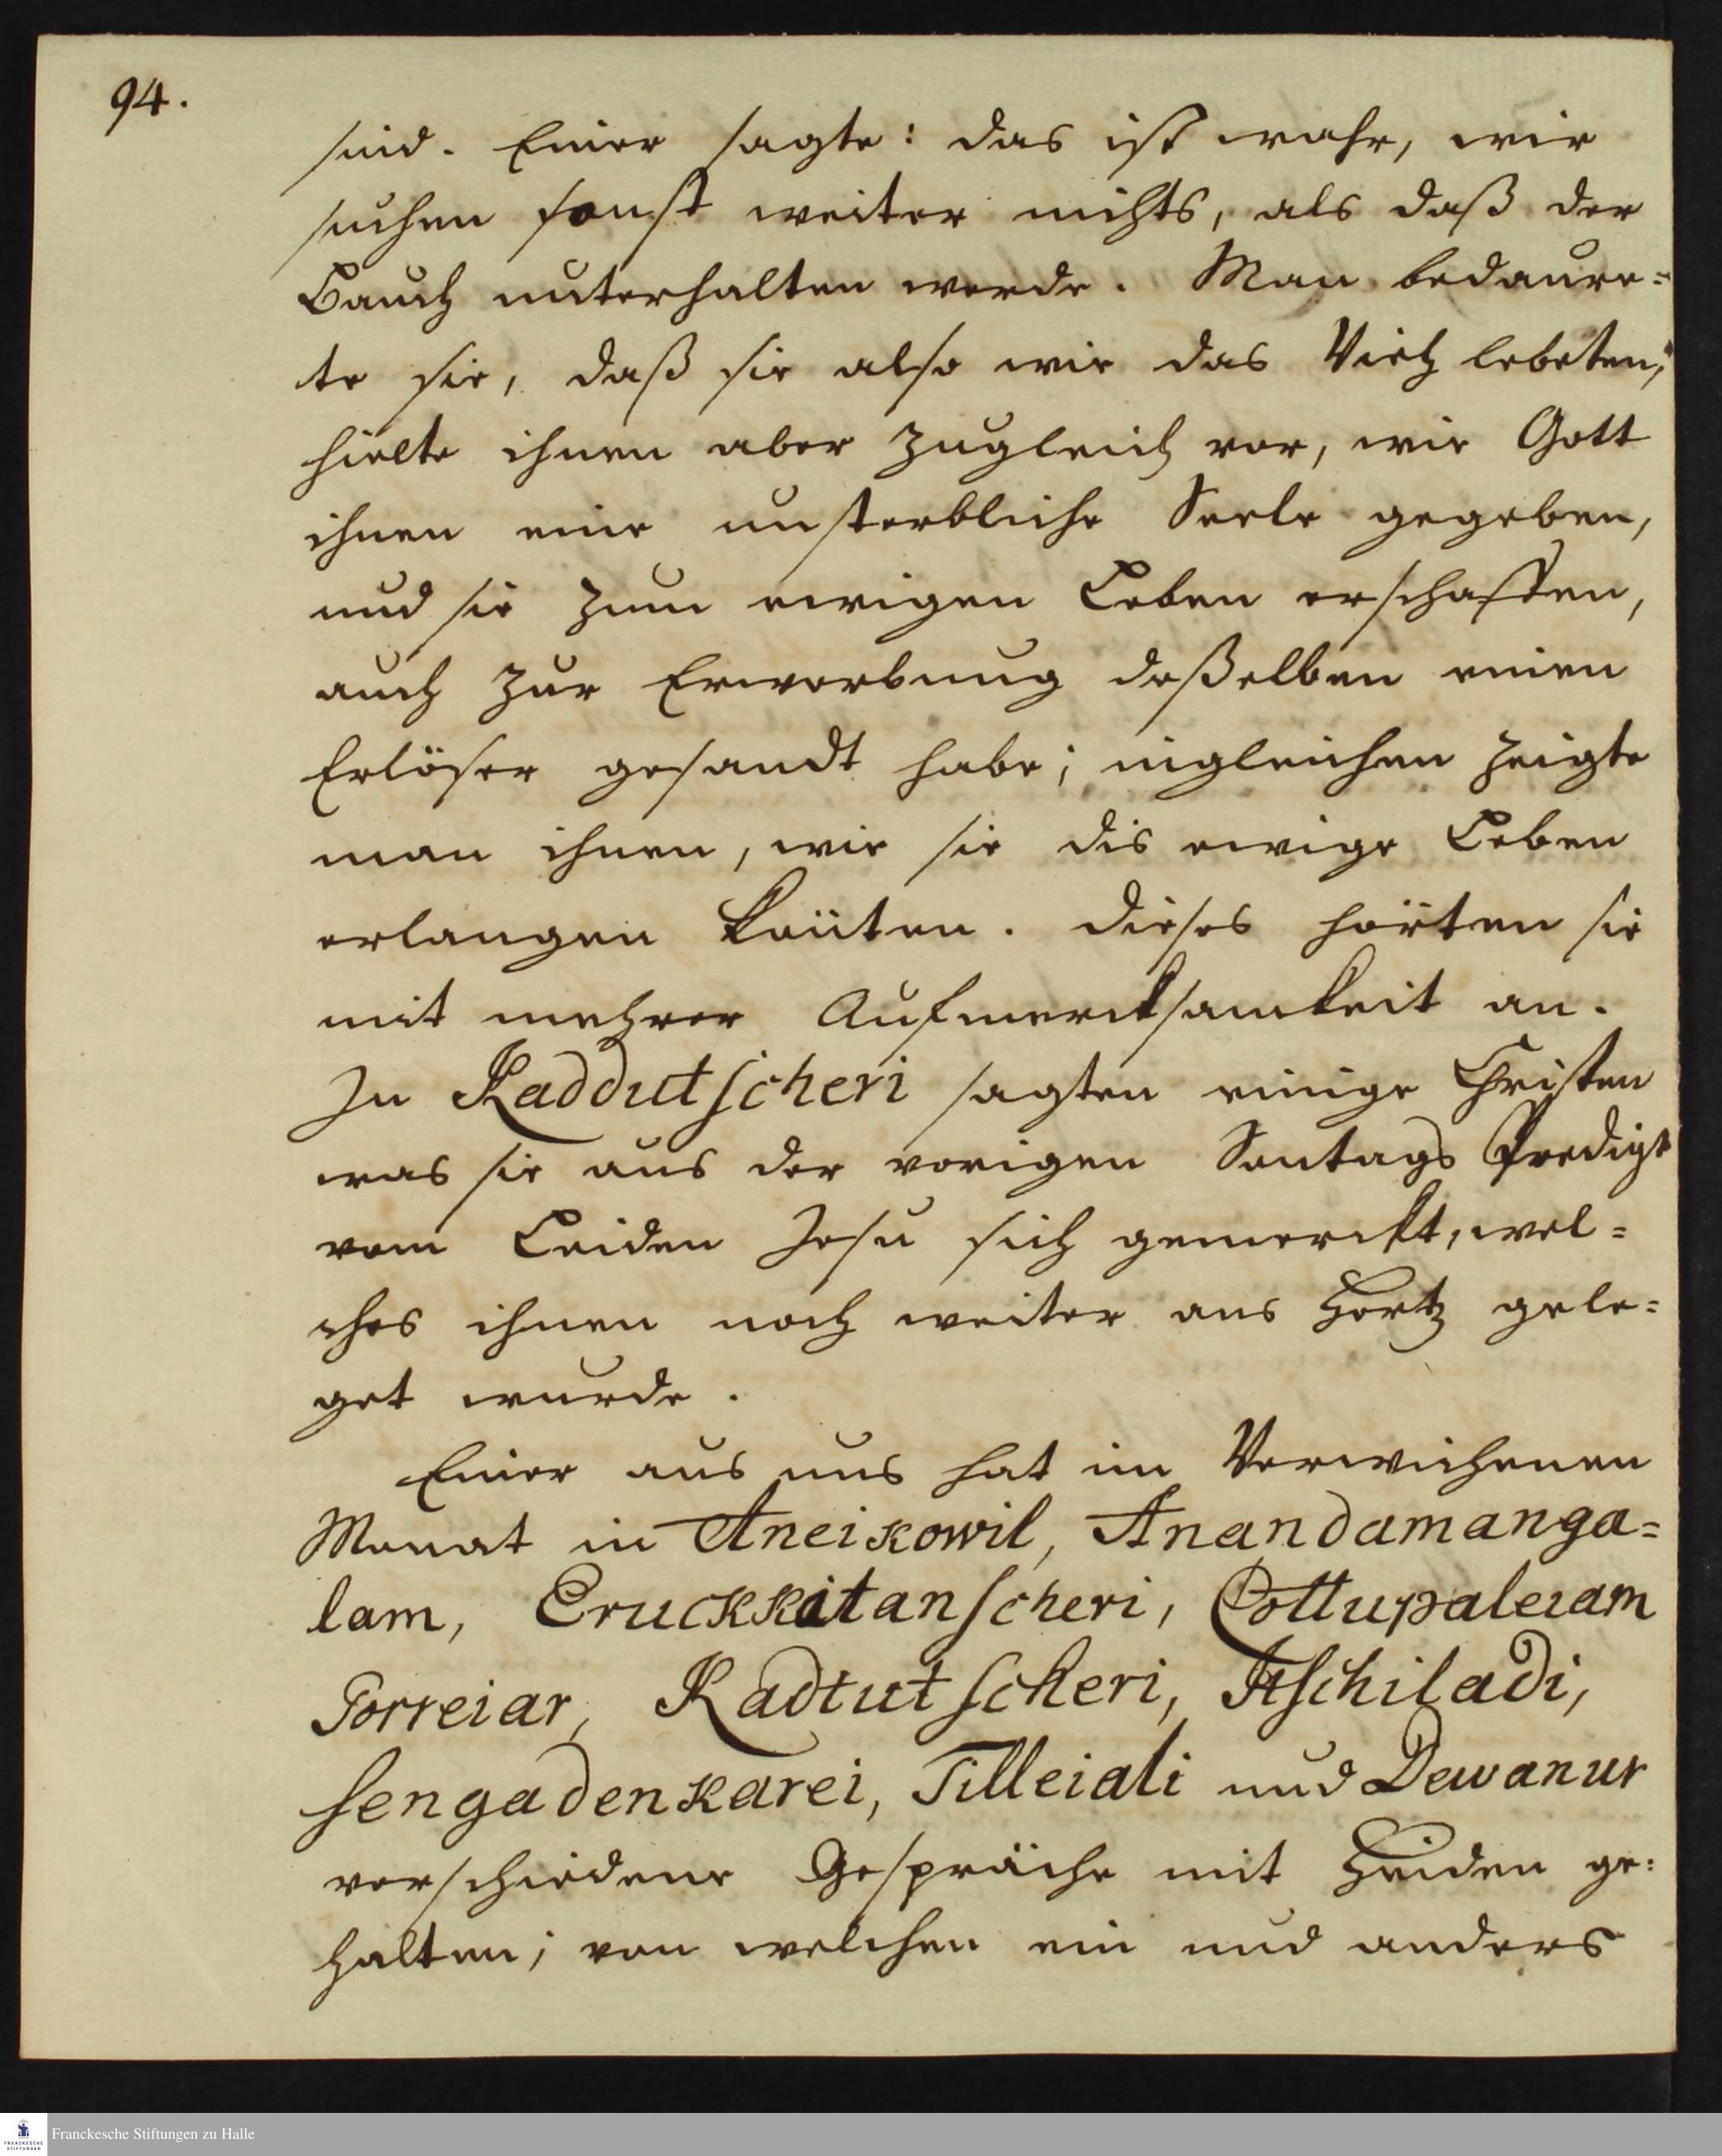 94.
sind. Einer sagte: das ist wahr, wir
suchen sonst weiter nichts, als daß der
Bauch unterhalten werde. Man bedaure=
te sie, daß sie also wie das Vieh lebeten,
hielte ihnen aber zugleich vor, wie Gott
ihnen eine unsterbliche Seele gegeben,
und sie zum ewigen Leben erschaffen,
auch zur Erwerbung deßelben einen
Erlöser gesandt habe; ingleichen zeigte
man ihnen, wie sie dis ewige Leben
erlangen könten. Dieses hörten sie
mit mehrer Aufmercksamkeit an.
In Kaddutscheri sagten einige Christen
was sie aus der vorigen Sontags Predigt
vom Leiden Jesu sich gemerckt, wel=
ches ihnen noch weiter ans Hertz gele=
get wurde.
Einer aus uns hat im Verwichenen
Monat in Aneikowil, Anandamanga=
lam, Eruckkitanscheri, Cottupaleiam
Porreiar, Kadtutscheri, Atschiladi,
Sengadenkarei, Tilleiali und Dewanur
verschiedene Gespräche mit Heiden ge=
halten; von welchen ein und anders
Franckesche Stiftungen zu Halle
FRANCKESCHE
STIFTUNGEN